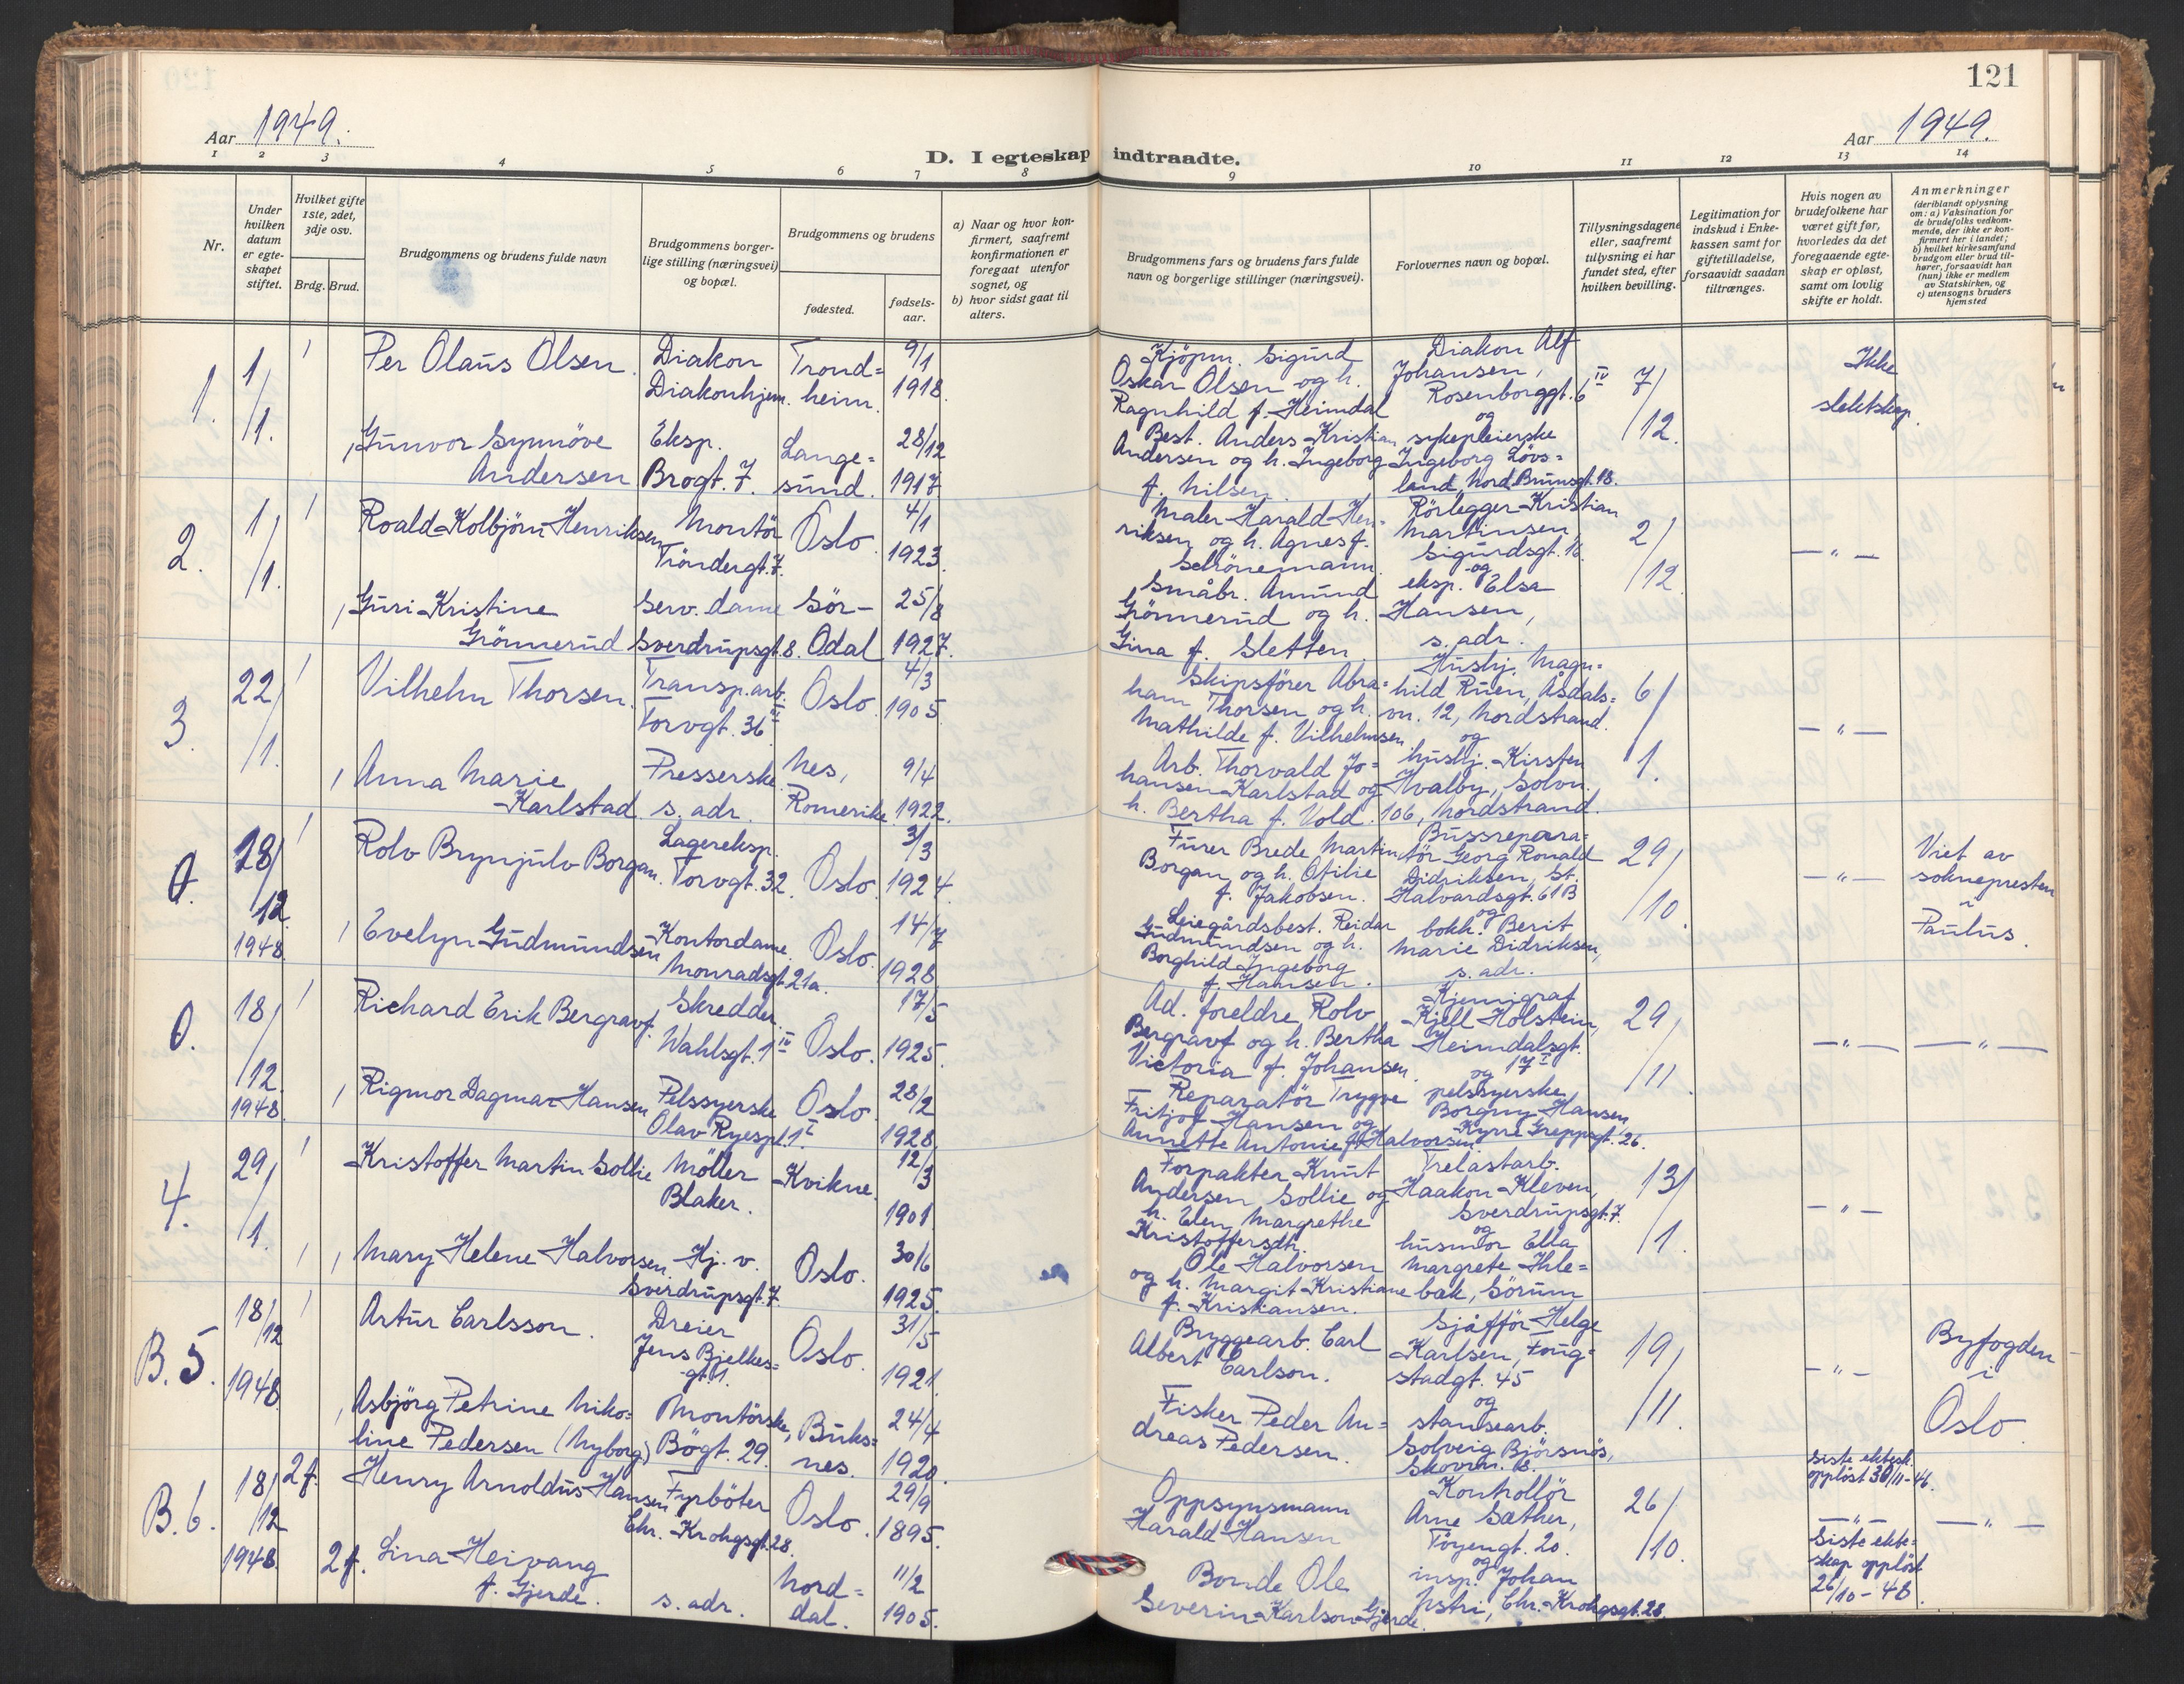 121
Aar 1949.
Aar 1949.
D. I egteskap indtraadte.
1 2 3 4 5 6 7 8 9 10 11 12 13 14
Nr.
Under hvilken datum er egteskapet stiftet.
Hvilket gifte 1ste, 2det, 3dje osv.
Brdg. Brud.
Brudgommens og brudens fulde navn
Brudgommens borgerlige stilling (næringsvei) og bopæl.
Brudgommens og brudens
fødested.
fødselsaar.
a) Naar og hvor konfirmert, saafremt konfirmationen er foregaat utenfor sognet, og
b) hvor sidst gaat til alters.
Brudgommens fars og brudens fars fulde navn og borgerlige stillinger (næringsvei).
Forlovernes navn og bopæl.
Tillysningsdagene eller, saafremt tillysning ei har fundet sted, efter hvilken bevilling.
Legitimation for indskud i Enkekassen samt for giftetilladelse, forsaavidt saadan tiltrænges.
Hvis nogen av brudefolkene har været gift før, hvorledes da det foregaaende egteskap er opløst, samt om lovlig skifte er holdt.
Anmerkninger (deriblandt oplysning om: a) Vaksination for de brudefolks vedkommende, der ikke er konfirmert her i landet; b) hvilket kirkesamfund brudgom eller brud tilhører, forsaavidt han (hun) ikke er medlem av Statskirken, og c) utensogns bruders hjemsted
1. 1/1. 1
Per Olaus Olsen.
Diakon
Diakonhjem.
Trond=
heim.
9/1
1918.
Kjøpm. Sigurd
Oskar Olsen og h.
Ragnhild f. Heimdal
Diakon Alf
Johansen,
Rosenborggt. 6 IV
og
7/12.
Ikke
slektskap.
1 Gunvor Synnöve
Andersen
Eksp.
Brogt. 7.
Lange=
sund.
28/12
1917.
Best. Anders Kristian
Andersen og h. Ingeborg
f. Nilsen.
sykepleierske
Ingeborg Lövs=
land, Nord. Brunsgt. 18.
2. 1/1. 1
Roald Kolbjörn Henriksen
Montör
Tröndergt. 7.
Oslo.
4/1
1923.
Maler Harald Hen=
riksen og h. Agnes f.
Schönemann.
Rörlegger Kristian
Martinsen,
Sigurdsgt. 16.
og
2/12.
— " —
1 Guri Kristine
Grönnerud
Serv. dame
Sverdrupsgt. 8.
Sör-
Odal
25/8
1927.
Småbr. Amund
Grönnerud og h.
Gina f. Sletten
eksp. Elsa
Hansen,
s. adr.
3. 22/1. 1
Vilhelm Thorsen.
Transp.arb.
Torvgt. 36 III
Oslo.
4/3
1905.
Skipsförer Abra=
ham Thorsen og h.
Mathilde f. Vilhelmsen.
Hushj. Magn=
hild Ruen, Åsdals=
vn. 12, Nordstrand.
og
6/1.
— " —
1 Anna Marie
Karlstad.
Presserske
s. adr.
Nes,
Romerike.
9/4
1922.
Arb. Thorvald Jo=
hansen Karlstad og
h. Bertha f. Vold.
hushj. Kirsten
Hvalby, Solvn.
106, Nordstrand.
0. 28/12 1948. 1
Rolv Brynjulv Borgan.
Lagereksp.
Torvgt. 32.
Oslo.
3/3
1924.
Furer Brede Martin
Borgan og h. Otilie
f. Jakobsen.
Bussrepara=
tör Georg Ronald
Didriksen, St.
Halvardsgt. 61 B
og
29/10.
— " —
Viet av
soknepresten
i
Paulus.
1 Evelyn Gudmundsen
Kontordame.
Monradsgt. 21a.
Oslo.
14/7
1928
Leiegårdsbest. Reidar
Gudmundsen og h.
Borghild Ingeborg
f. Hansen.
bokh. Berit
Marie Didriksen,
s. adr.
0. 18/12. 1948. 1
Richard Erik Bergravf.
Skredder
Wahlsgt. 1 IV
Oslo.
17/5
1925.
Ad. foreldre Rolv
Bergravf og h. Bertha
Victoria f. Johansen.
Kjemigraf
Kjell Holstein,
Heimdalsgt.
17 I
og
29/11.
— " —
— " —
1 Rigmor Dagmar Hansen
Pelssyerske
Olav Ryespl. 1 I
Oslo.
28/2
1928.
Reparatör Trygve
Fritjof Hansen og
Annette Antonie f. Halvorsen
pelssyerske
Borgny Hansen
Kyrre Greppsgt. 26.
4. 29/1. 1
Kristoffer Martin Sollie
Möller
Blaker.
Kvikne.
12/3
1901
Forpakter Knut
Andersen Sollie og
h. Elen Margrethe
Kristoffersdtr.
Trelastarb.
Haakon Kleven,
Sverdrupsgt. 7.
og
13/1.
— " —
1 1 Mary Helene Halvorsen.
Hj. v.
Sverdrupsgt. 7.
Oslo.
30/6
1925.
Ole Halvorsen
og h. Margit Kristiane
f. Kristiansen.
husmor Ella
Margrete Ihle=
bæk, Sörum
B. 5. 18/12 1948. 1
Artur Carlsson.
Dreier
Jens Bjelkes=
gt. 1.
Oslo.
31/5
1921.
Bryggearb. Carl
Albert Carlson.
Sjåfför Helge
Karlsen, Foug=
stadgt. 45
og
19/11.
— " —
Byfogden
i
Oslo.
1 Asbjörg Petrine Niko=
line Pedersen (Nyborg)
Montörske,
Bögt. 29.
Buks=
nes.
24/4
1920.
Fisker Peder An=
dreas Pedersen.
stansearb.
Solveig Björsnös,
Skovvn. 18.
B. 6. 18/12 1948. 2 f.
Henry Arnoldus Hansen
Fyrböter
Chr. Krohgsgt. 28.
Oslo.
29/9
1895.
Oppsynsmann
Harald Hansen
Kontrollör
Arne Sæther,
Töyengt. 20.
og
26/10.
Siste ektesk.
opplöst 30/11 - 46.
— " —
— " —
2 f. Lina Heivang
f. Gjerde.
s. adr.
Nord=
dal.
11/2
1905.
Bonde Ole
Severin Karlson Gjerde.
insp. Johan
Ystri, Chr. Krohgsgt. 28.
Siste ekte=
skap opplöst
26/10 - 48.